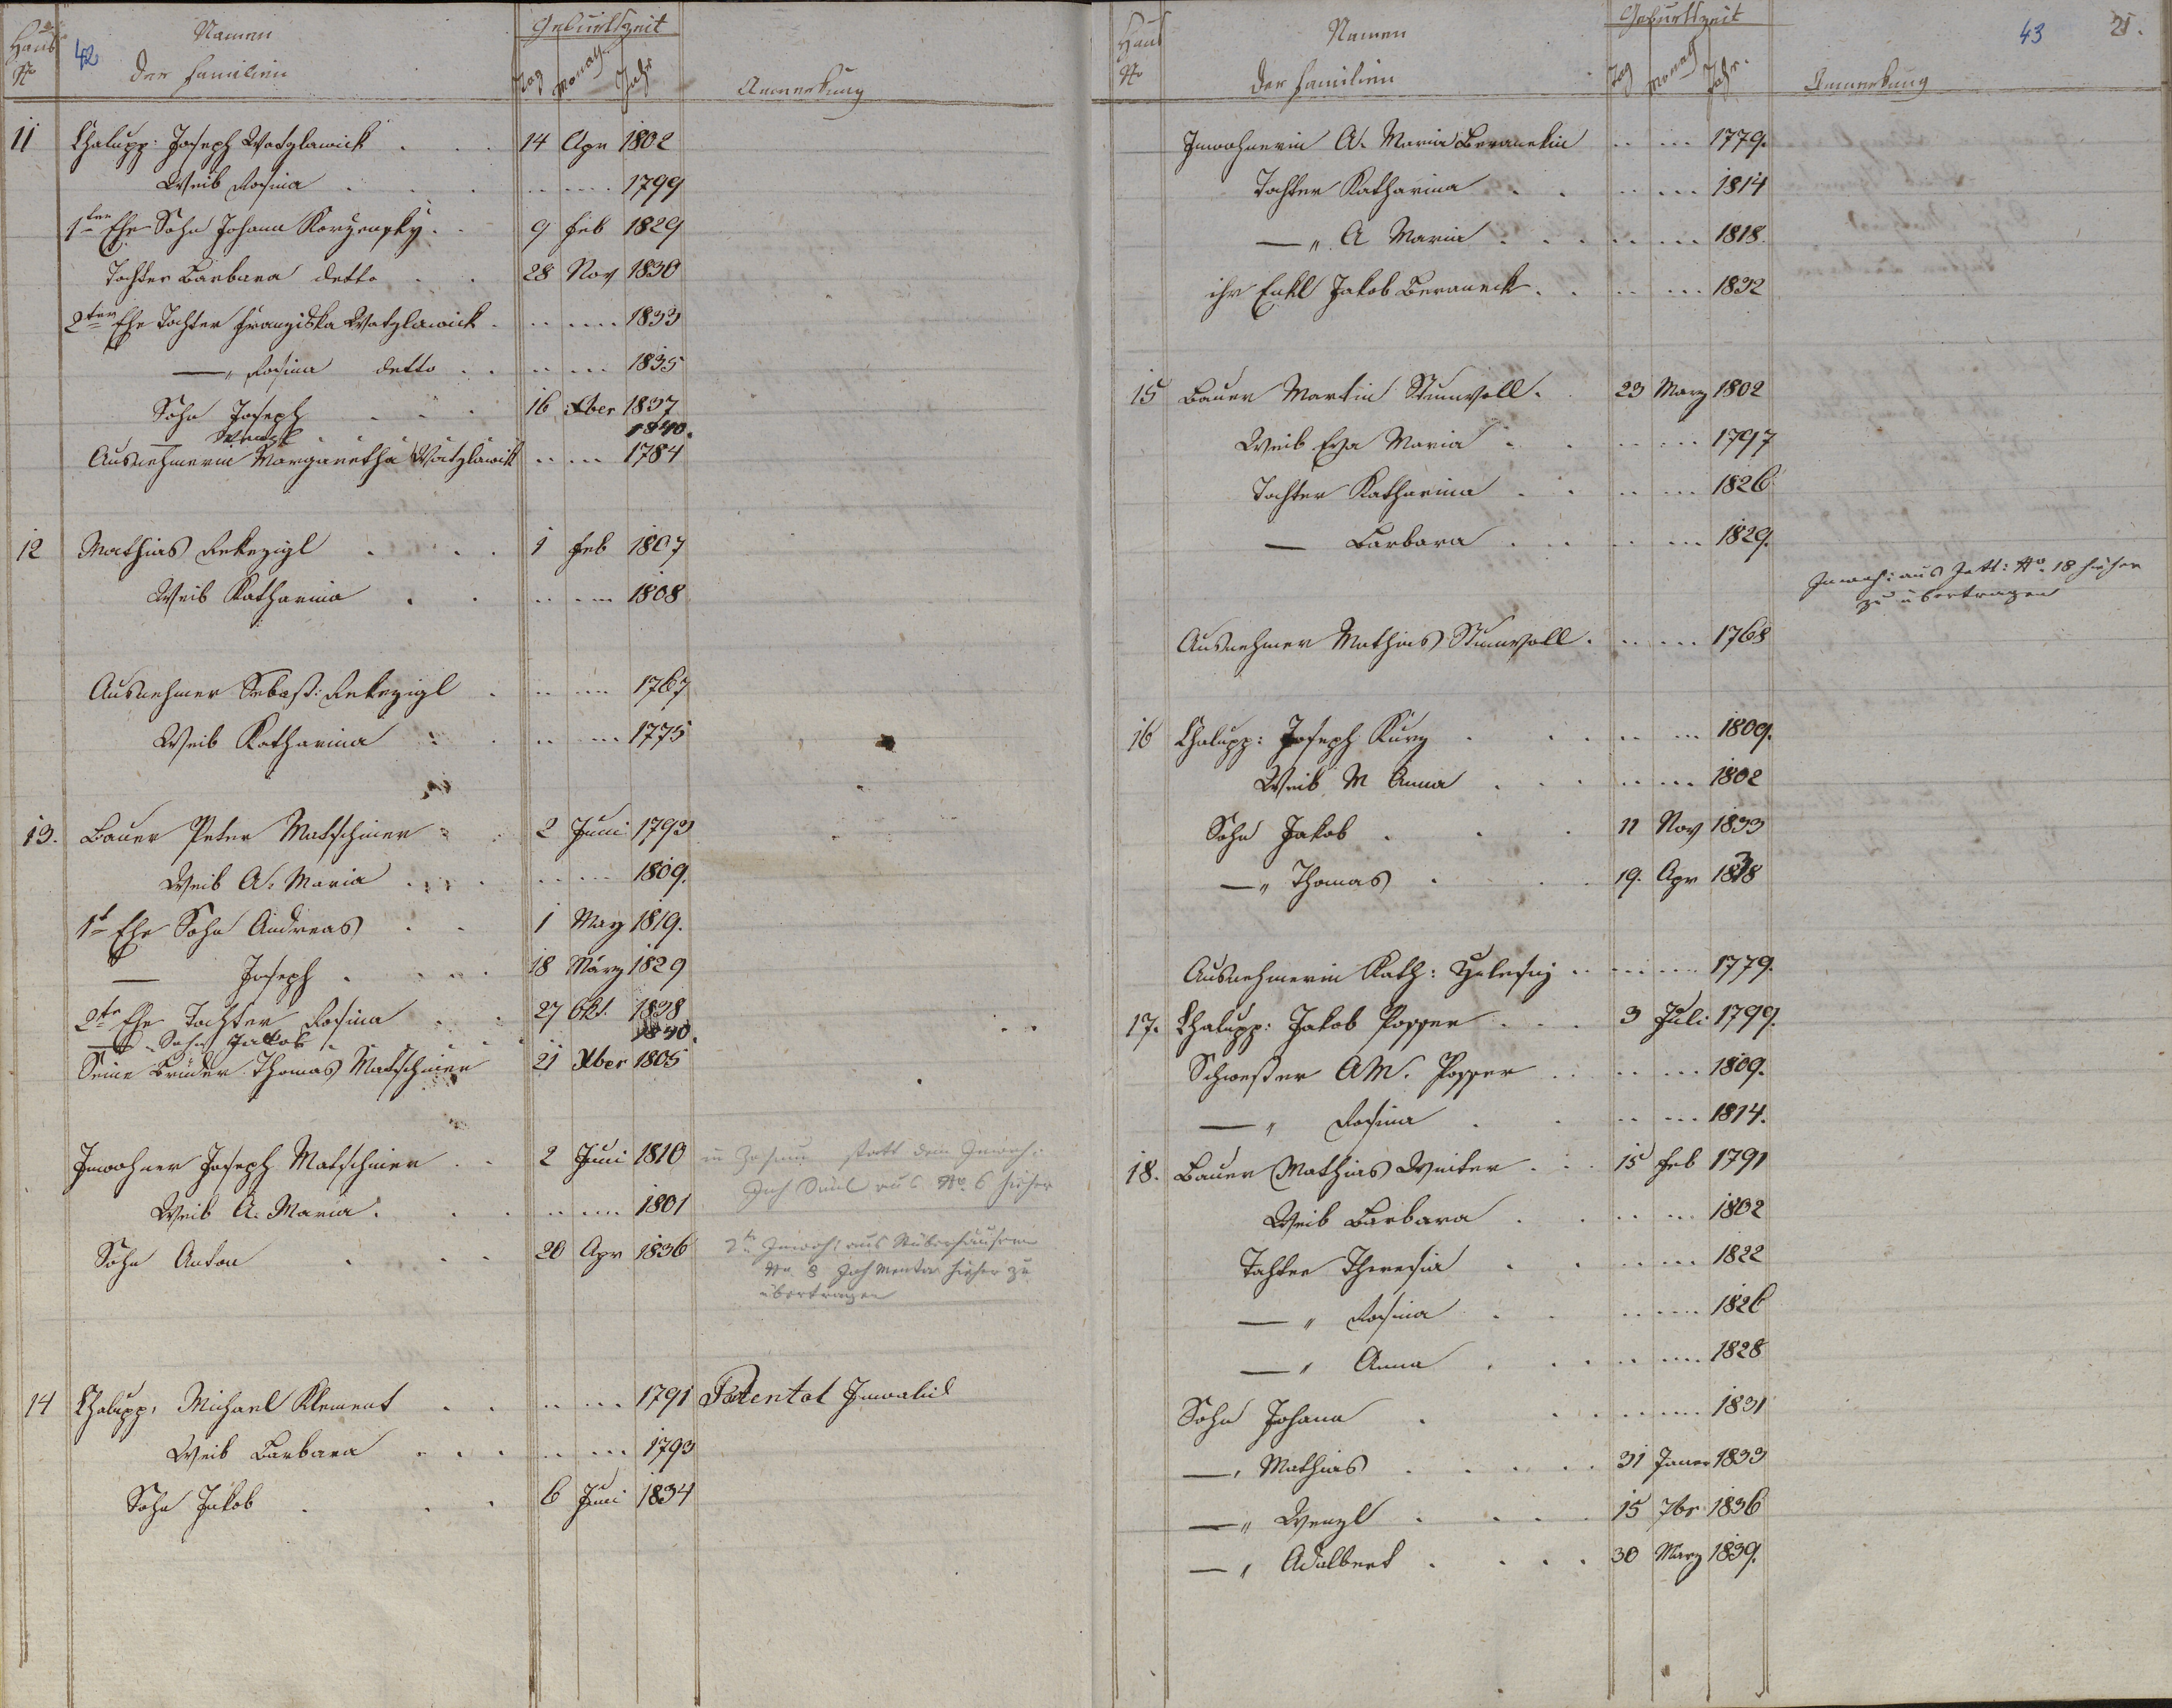 Haus No 42 Namen der Familien Geburtszeit Tag Monath Jahr Anmerkung
11 Chalupp: Joseph Watzlawick . . . 14 Apr 1802
Weib Rosina . . . 1799
1ter Ehe Sohn Johann Korzensky . . 9 Feb 1829
Tochter Barbara detto . . 28 Nov 1830
2ter Ehe Tochter Franziska Watzlawick . 1833
—" Rosina detto . . 1835
Sohn Joseph . . . 16 Xber 1837
— Wenzl . . . 1840.
Ausnehmerin Margaretha Watzlawick 1784
12 Mathias . . . 1 Feb 1807
Weib Katharina . . 1808
Ausnehmer Sebast: . 1767
Weib Katharina . . 1775
13. Bauer Peter Matschiner . . 2 Juni 1793
Weib A. Maria . . . 1809.
1t Ehe Sohn Andreas . . 1 May 1819.
— Joseph . . . . 18 März 1829
2te Ehe Tochter Rosina . . 27 Okt. 1838
— " Sohn Jakob . . . 1840.
Seine Bruder Thomas Matschiner 21 Xber 1805
Inwohner Joseph Matschiner . . 2 Juni 1810 statt dem Inwoh:
aus No. 6 hieher
Weib A. Maria . . . 1801
Sohn Anton . . . 20 Apr 1836 2te Inwoh: aus
No. 8 hieher zu
übertragen
14 Chalupp: Michael Klement . . 1791 Patental Invalid
Weib Barbara . . . 1793
Sohn Jakob . . . 6 Juni 1834
Haus No Namen der Familien Geburtszeit Tag Monath Jahr. Anmerkung 43 21.
Inwohnerin A. Maria Beranekin 1779.
Tochter Katharina . . 1814
—" A Maria . . . 1818.
ihr Enkl Jakob Beraneck . . 1832
15 Bauer Martin Stumvoll . . 23 Marz 1802
Weib Eva Maria . . 1797
Tochter Katharina . . 1826
— Barbara . . . 1829.
Inwoh: aus No. 18 hieher
zu übertragen
Ausnehmer Mathias Stumvoll . 1768
16 Chalupp: Joseph Kurz . . . 1809.
Weib M Anna . . . 1802
Sohn Jakob . . . 11 Nov 1833
—" Thomas . . . 19. Apr 1838
Ausnehmerin Kath: . . 1779.
17. Chalupp: Jakob Popper . . . 3 Juli 1799.
Schwester AM. Popper . . 1809.
—" Rosina . . 1814.
18. Bauer Mathias . . . 15 Feb 1791
Weib Barbara . . . 1802
Tochter Theresia . . . 1822
—" Rosina . . . 1826
—" Anna . . . 1828
Sohn Johann . . . 1831
—" Mathias . . . . . 31 Janer 1833
—" Wenzl . . . . 15 7br 1836
—" Adalbert . . . . 30 Marz 1839.